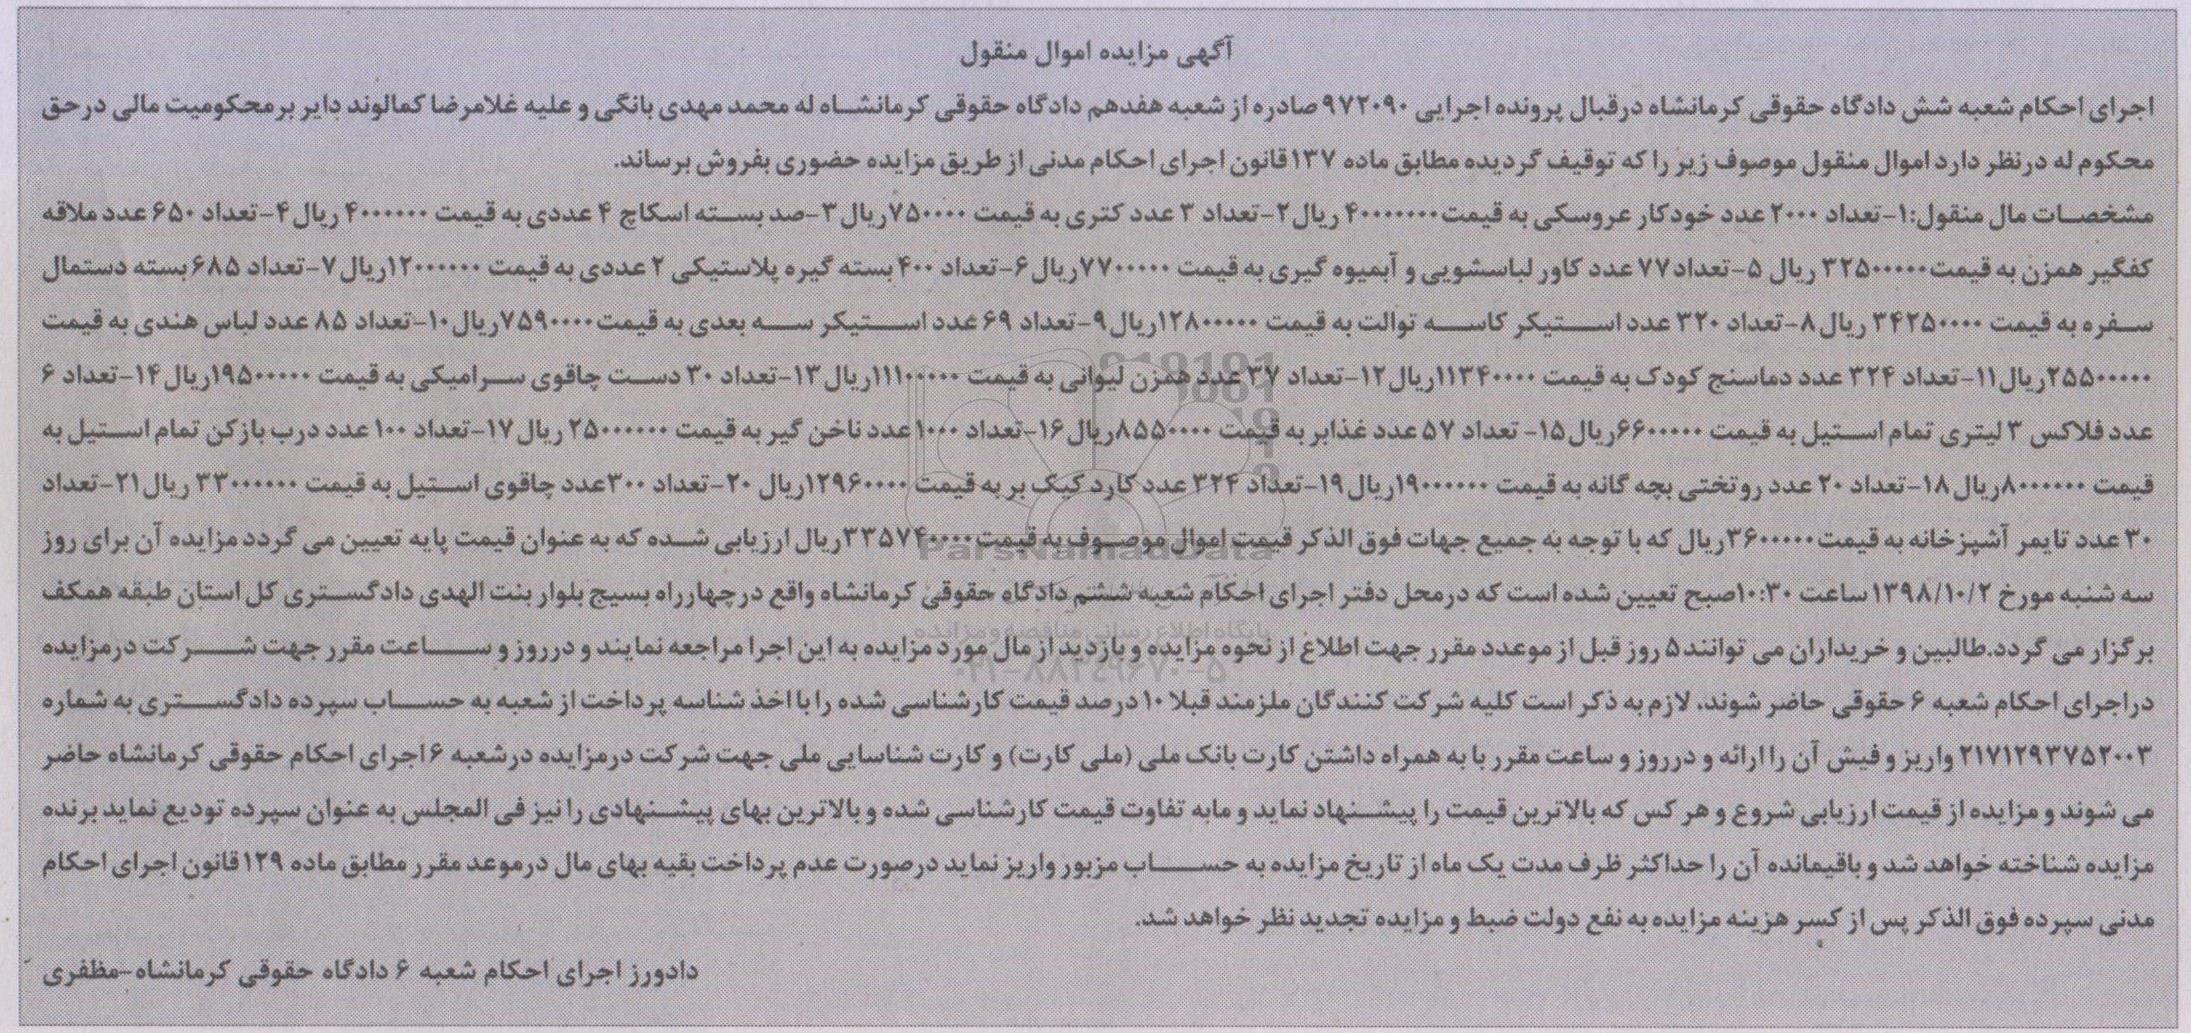 آگهی مزایده اموال منقول
اجرای احکام شعبه شش دادگاه حقوقی کرمانشاه درقبال پرونده اجرایی ۹۷۲۰۹۰ صادره از شعبه هفدهم دادگاه حقوقی کرمانشاه له محمد مهدی بانگی و علیه غلامرضا کمالوند دایر برمحکومیت مالی درحق
محکوم له درنظر دارد اموال منقول موصوف زیر را که توقیف گردیده مطابق ماده ۱۳۷قانون اجرای احکام مدنی از طریق مزایده حضوری بفروش برساند.
مشخصات مال منقول:۱-تعداد ۲۰۰۰ عدد خودکار عروسکی به قیمت۴۰۰۰۰۰۰۰ ریال۲-تعداد ۳ عدد کتری به قیمت ۷۵۰۰۰۰ریال ۳-صد بسته اسکاچ ۴ عددی به قیمت ۴۰۰۰۰۰۰ ریال۴-تعداد ۶۵۰ عدد ملاقه
کفگیر همزن به قیمت۳۲۵۰۰۰۰۰ ریال ۵-تعداد۷۷ عدد کاور لباسشویی و آبمیوه گیری به قیمت ۷۷۰۰۰۰۰ریال۶-تعداد ۴۰۰ بسته گیره پلاستیکی ۲ عددی به قیمت ۱۲۰۰۰۰۰۰ریال۷-تعداد ۶۸۵ بسته دستمال
سفره به قیمت ۳۴۲۵۰۰۰۰ ریال۸-تعداد ۳۲۰ عدد استیکر کاسه توالت به قیمت ۱۲۸۰۰۰۰۰ریال۹-تعداد ۶۹ عدد استیکر سه بعدی به قیمت۷۵۹۰۰۰۰ریال۱۰-تعداد ۸۵ عدد لباس هندی به قیمت
۲۵۵۰۰۰۰۰ریال۱۱-تعداد ۳۲۴ عدد دماسنج کودک به قیمت ۱۱۳۴۰۰۰۰ریال۱۲-تعداد ۳۷ عدد همزن لیوانی به قیمت ۱۱۱۰۰۰۰۰ریال۱۳-تعداد ۳۰ دست چاقوی سرامیکی به قیمت ۱۹۵۰۰۰۰۰ریال۱۴-تعداد ۶
عدد فلاکس ۳ لیتری تمام استیل به قیمت ۶۶۰۰۰۰۰ریال۱۵- تعداد ۵۷ عدد غذابر به قیمت ۸۵۵۰۰۰۰ریال۱۶-تعداد ۱۰۰۰ عدد ناخن گیر به قیمت ۲۵۰۰۰۰۰۰ ریال۱۷-تعداد ۱۰۰ عدد درب بازکن تمام استیل به
قیمت ۸۰۰۰۰۰۰ریال۱۸-تعداد ۲۰ عدد روتختی بچه گانه به قیمت ۱۹۰۰۰۰۰۰ریال۱۹-تعداد ۳۲۴ عدد کارد کیک بر به قیمت ۱۲۹۶۰۰۰۰ریال ۲۰-تعداد ۳۰۰عدد چاقوی استیل به قیمت ۳۳۰۰۰۰۰۰ ریال۲۱-تعداد
۳۰ عدد تایمر آشپزخانه به قیمت۳۶۰۰۰۰۰ریال که با توجه به جمیع جهات فوق الذکر قیمت اموال موصوف به قیمت۳۳۵۷۴۰۰۰۰ریال ارزیابی شده که به عنوان قیمت پایه تعیین می گردد مزایده آن برای روز
سه شنبه مورخ ۱۳۹۸/۱۰/۲ساعت ۱۰:۳۰صبح تعیین شده است که درمحل دفتر اجرای احکام شعبه ششم دادگاه حقوقی کرمانشاه واقع درچهارراه بسیج بلوار بنت الهدی دادگستری کل استان طبقه همکف
برگزار می گردد.طالبین و خریداران می توانند ۵ روز قبل از موعدد مقرر جهت اطلاع از نحوه مزایده و بازدید از مال مورد مزایده به این اجرا مراجعه نمایند و درروز و ساعت مقرر جهت شرکت درمزایده
دراجرای احکام شعبه ۶ حقوقی حاضر شوند. لازم به ذکر است کلیه شرکت کنندگان ملزمند قبلا ۱۰ درصد قیمت کارشناسی شده را با اخذ شناسه پرداخت از شعبه به حساب سپرده دادگستری به شماره
۲۱۷۱۲۹۳۷۵۲۰۰۳ واریز و فیش آن را ارائه و درروز و ساعت مقرر با به همراه داشتن کارت بانک ملی (ملی کارت) و کارت شناسایی ملی جهت شرکت درمزایده درشعبه ۶اجرای احکام حقوقی کرمانشاه حاضر
می شوند و مزایده از قیمت ارزیابی شروع و هر کس که بالاترین قیمت را پیشنهاد نماید و مابه تفاوت قیمت کارشناسی شده و بالاترین بهای پیشنهادی را نیز فی المجلس به عنوان سپرده تودیع نماید برنده
مزایده شناخته خواهد شد و باقیمانده آن را حداکثر ظرف مدت یک ماه از تاریخ مزایده به حساب مزبور واریز نماید درصورت عدم پرداخت بقیه بهای مال درموعد مقرر مطابق ماده ۱۲۹قانون اجرای احکام
مدنی سپرده فوق الذکر پس از کسر هزینه مزایده به نفع دولت ضبط و مزایده تجدید نظر خواهد شد.
دادورز اجرای احکام شعبه ۶ دادگاه حقوقی کرمانشاه-مظفری
ParsNamadData
پایگاه اطلاع رسانی مناقصه و مزایده
۰۲۱-۸۸۳۴۹۶۷۰-۵